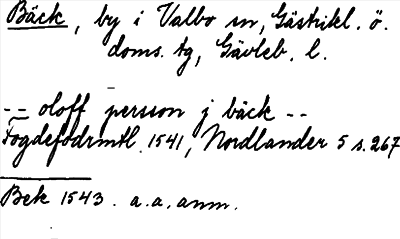 Bäck, by i Valbo sn, Gästrikl. ö.
doms. tg, Gävleb. l.
-- oloff persson j bäck --
Fogdefodrmtl. 1541, Nordlander 5 s. 267
Bek 1543. a.a. anm.